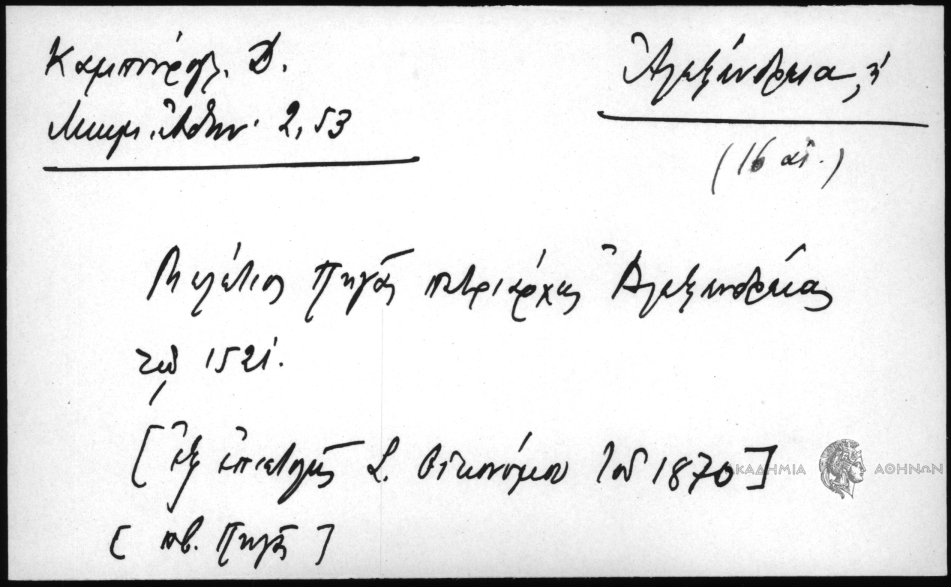 Καμπούρογλ. Δ.
Μνημ. Ἀθην. 2, 53
Ἀλεξάνδρεια, ἡ
(16 αἰ.)
Μελέτιος Πηγᾶς πατριάρχης Ἀλεξανδρείας
τῷ 1521.
[ἐξ ἐπιστολῆς Σ. Οἰκονόμου τοῦ 1870]
[πβ. Πηγᾶς]
ΑΚΑΔΗΜΙΑ ΑΘΗΝΩΝ